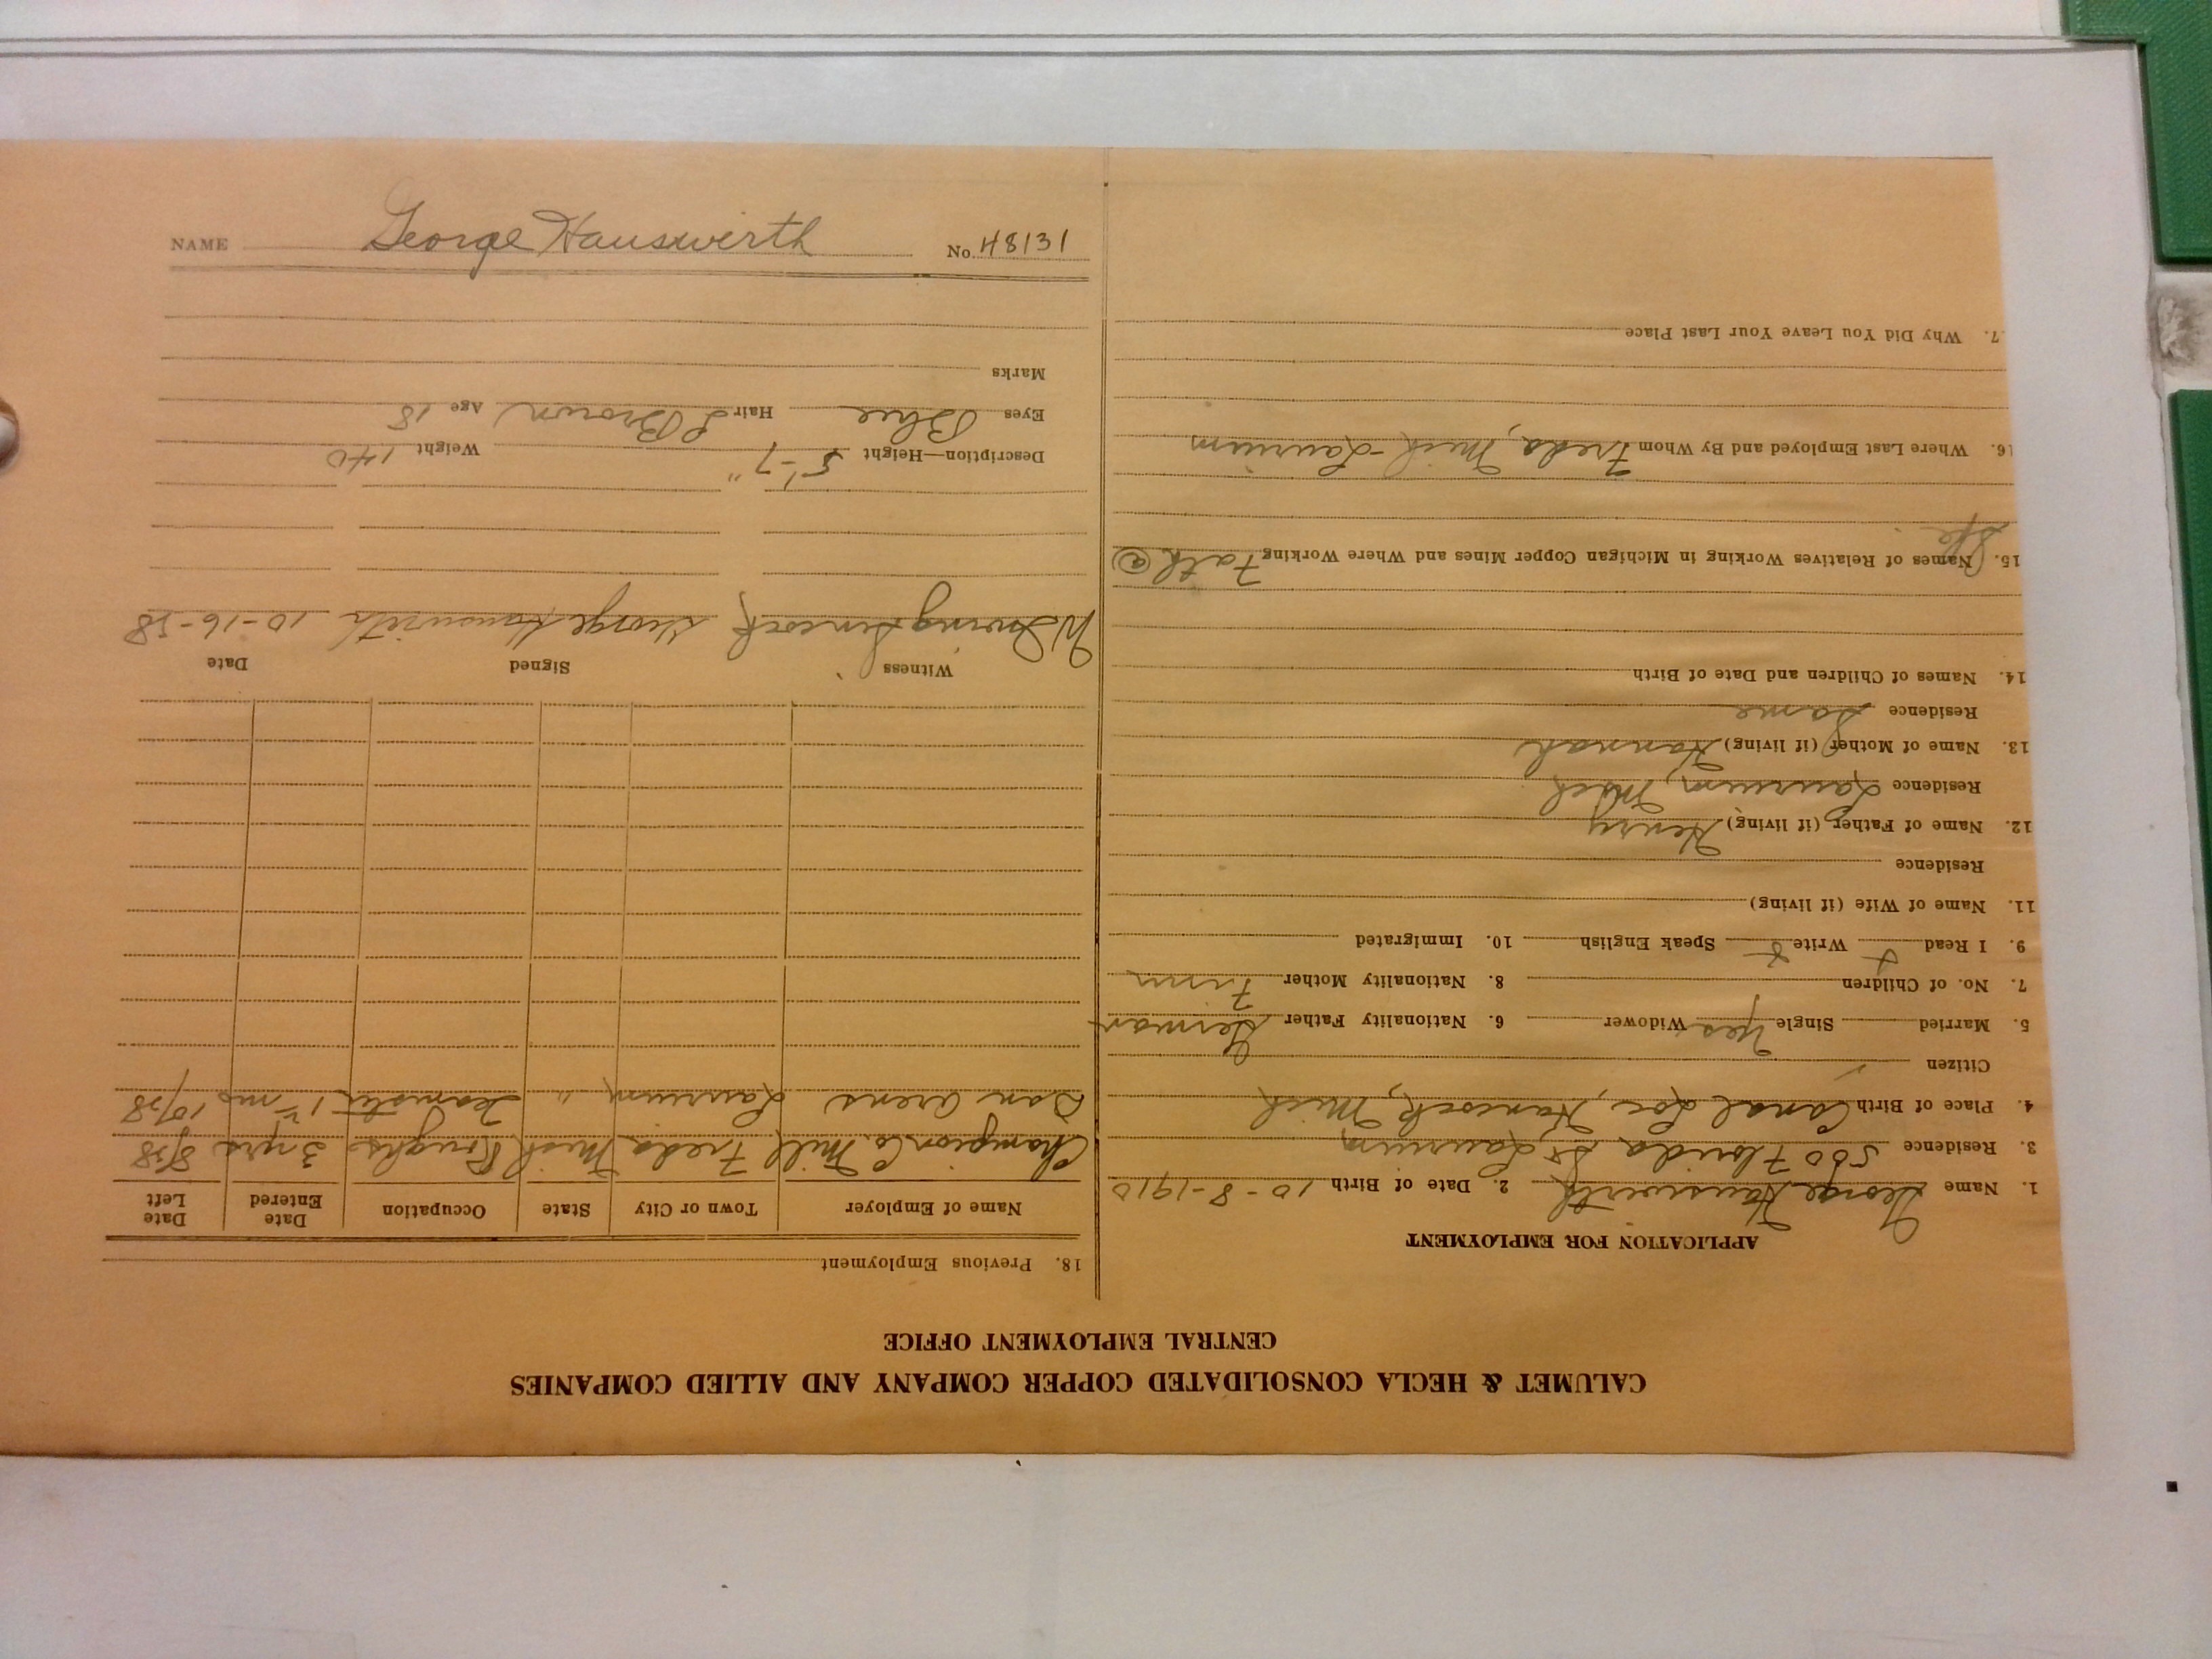 CALUMET & HECLA CONSOLIDATED COPPER COMPANY AND ALLIED COMPANIES
CENTRAL EMPLOYMENT OFFICE
APPLICATION FOR EMPLOYMENT
1. Name George Hauswirth 2. Date of Birth 10-8-1910
3. Residence 500 Florida St Laurium
4. Place of Birth Canal Loc, Hancock, Mich
Citizen
5. Married Single Yes Widower 6. Nationality Father German
7. No. of Children 8. Nationality Mother Finn
9. I Read Write Speak English 10. Immigrated
11. Name of Wife (if living)
Residence
12. Name of Father (if living) Henry
Residence Laurium, Mich
13. Name of Mother (if living) Hannah
Residence Same
14. Names of Children and Date of Birth
15. Names of Relatives Working in Michigan Copper Mines and Where Working Fath @
16. Where Last Employed and By Whom Freda, Mich - Laurium
7. Why Did You Leave Your Last Place
18. Previous Employment
Name of Employer Town or City State Occupation Date Entered Date Left
Champion Co Mill Freda Mich 3 yrs 8/28
Dan Arens Laurium " Teamster 1 mo 10/28
Witness Signed Date
W Irving George Hauswirth 10-16-28
Description—Height 5'-7" Weight 140
Eyes Blue Hair L Brown Age 18
Marks
NAME George Hauswerth No. 48131